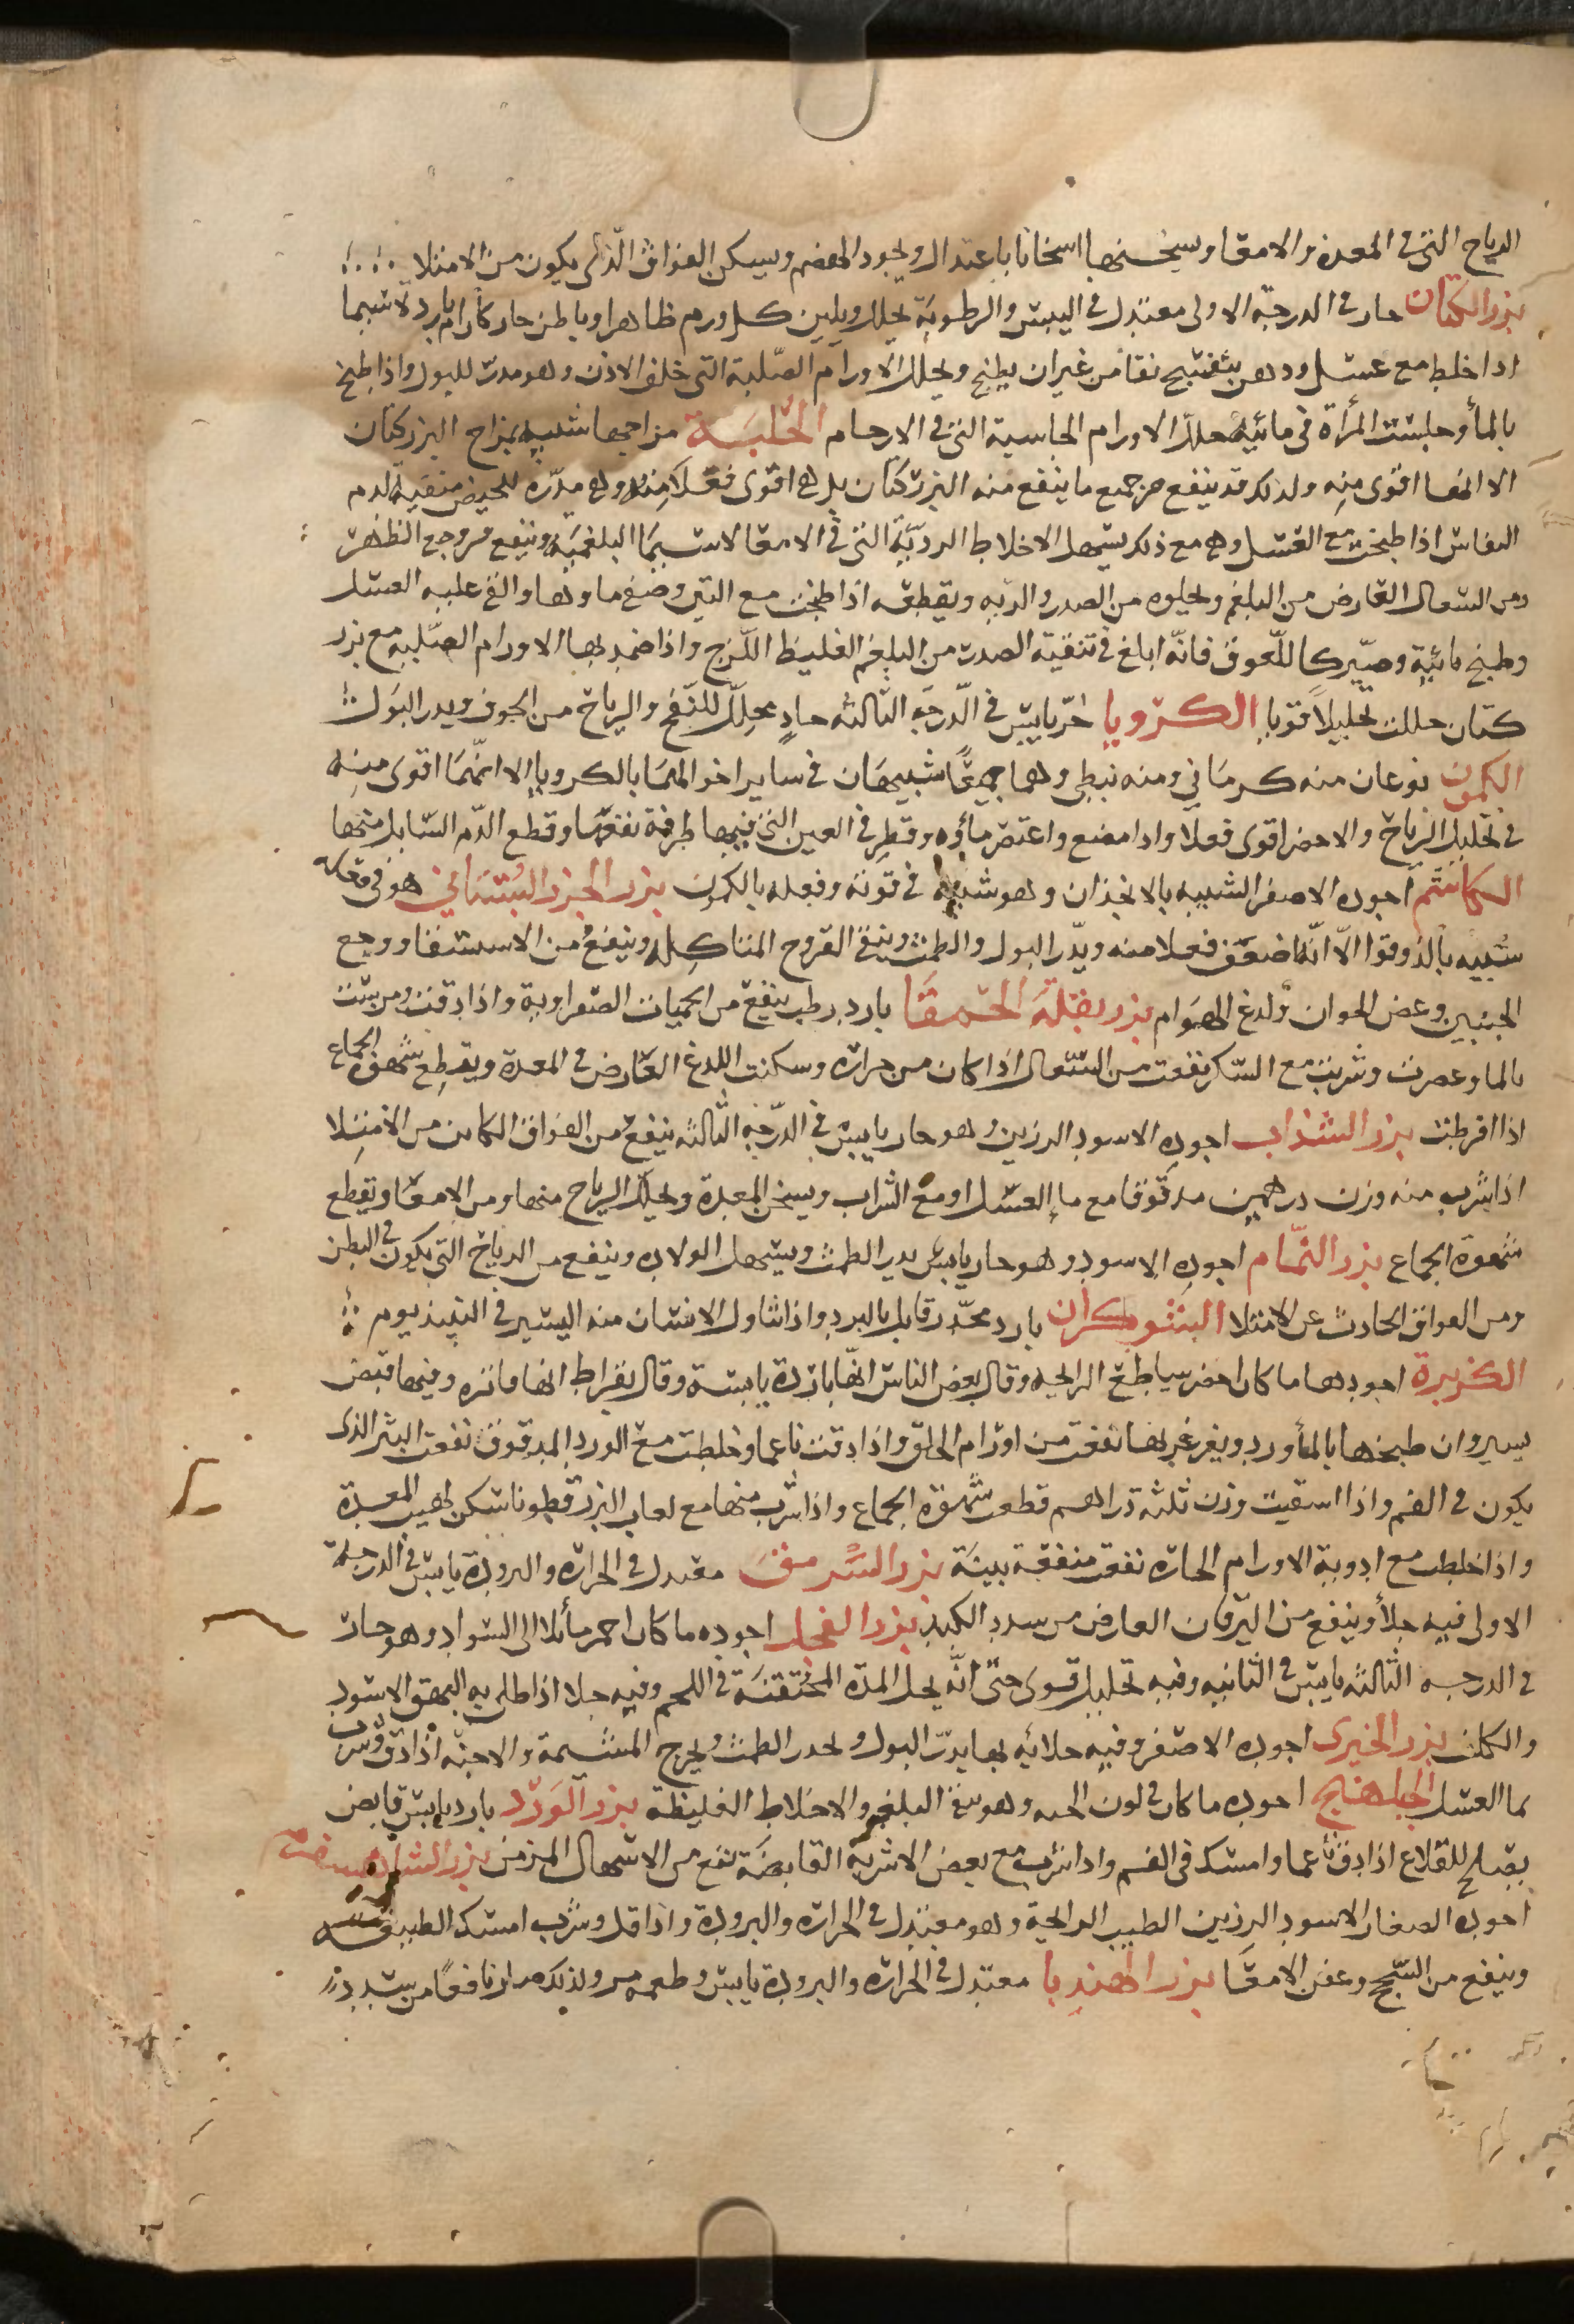 الرياح التى فى المعدة والامعا ويسخنها اسخانا باعتدال ويجود الهضم ويسكن الفواق الذى يكون من الامتلا
بزر الكتان حار فى الدرجة الاولى معتدل فى اليبس والرطوبة يحلل ويلين كل ورم ظاهرا وباطن حار كان ام بارد لاسيما
اذا خلط مع عسل ودهن بنفسج نقا من غير ان يطبخ ويحلل الاورام الصلبة التى خلف الاذن وهو مدر للبول واذا طبخ
بالمأ وجلست المرأة فى مائية حلل الاورام الجاسية التى فى الارحام الحلبة مزاجها شبيه بمزاج البزر كتان
الا انها اقوى منه ولذلك قد ينفع من جميع ما ينفع منه البزر كتان بل هى اقوى فعلا منه وهى مدره للحيض منقية لدم
النفاس اذا طبخت مع العسل وهى مع ذلك يسهل الاخلاط الردية التى فى الامعا لاسيما البلغمية وينفع من وجع الظهر
ومن السعال العارض من البلغم ويجلوه من الصدر والريه ويقطعه اذا طبخت مع التين وصفى ماوها والقى عليه العسل
وطبخ مائية وصير كاللعوق فانه ابلغ فى تنقية الصدر من البلغم الغليظ اللزج واذا ضمد بها الاورام الصلبه مع بزر
كتان حللت تحليلا قويا الكرويا حر يابس فى الدرجه الثالثه حاد محلل للنفخ والرياح من الجوف ويدر البول
الكمون نوعان منه كرمانى ومنه نبطى وهما جميعا شبيهان فى ساير احوالهما بالكرويا الا انهما اقوى منه
فى تحليل الرياح والاخضر اقوى فعلا واذا مضغ واعتصر مأوه وقطر فى العين التى فيها طرفة نفعها وقطع الدم السايل منها
الكاشم اجوده الاصفر الشبيه بالانجذان وهو شبيه فى قوته وفعله بالكمون بزر الجزر البستانى هو فى فعله
شبيه بالذوقوا الا انه اضعف فعلا منه ويدر البول والطمث وينقى القروح المتاكله وينفع من الاستسقا ووجع
الجنبين وعض الحيوان ولدغ الهوام بزر بقلة الحمقا بارد رطب ينفع من الحميات الصفراوية واذا دقت ومرست
بالما وعصرت وشربت مع السكر نفعت من السعال اذا كان من حراره وسكنت اللدغ العارض فى المعدة ويقطع شهوة الجماع
اذا افرطت بزر السذاب اجوده الاسود الرزين وهو حار يابس فى الدرجة الثالثه ينفع من الفواق الكاين من الامتلا
اذا شرب منه وزن درهمين مدقوقا مع ما العسل او مع الشراب ويسخن المعدة ويحلل الرياح منها ومن الامعا ويقطع
شهوة الجماع بزر النمام اجوده الاسود وهو حار يابس يدر الطمث ويسهل الولاده وينفع من الرياح التى يكون فى البطن
ومن الفواق الحادث عن الامتلا البنج بارد مخدر قاتل بالبرد واذا تناول الانسان منه اليسير فى النبيذ نوم
الكزبرة اجودها ما كان اخضر ساطع الرايحه وقال بعض الناس انها باردة يابسة وقال بقراط انها فاتره وفيها قبض
يسير وان طبخها بالمأ ورد ويغرغر بها نفعت من اورام الحلق واذا دقت ناعما وخلطت مع الورد المدقوق نفعت البثر الذى
يكون فى الفم واذا اسقيت وزن ثلثة دراهم قطعت شهوة الجماع واذا شرب منها مع لعاب البزر قطونا سكن لهيب المعدة
واذا خلطت مع ادوية الاورام الحاره نفعت منفعة بينة بزر السرمق معتدل فى الحراره والبرودة يابس فى الدرجة
الاولى فيه جلأ وينفع من اليرقان العارض من سدد الكبد بزر الفجل اجوده ما كان احمر مأئلا الى السواد وهو حار
فى الدرجه الثالثه يابس فى الثانيه وفيه تحليل قوى حتى انه يحل المدة المحتقنة فى اللحم وفيه جلا اذا طلى به البهق الاسود
والكلف بزر الخيرى اجوده الاصفر وفيه جلائيه بها يدر البول ويحدر الطمث ويخرج المشيمة والاجنه اذا دق وشرب
بما العسل الجبلهنج اجوده ما كان فى لون الحبه وهو ينقى البلغم والاخلاط الغليظة بزر الورد بارد يابس قابض
يصلح للقلاع اذا دق ناعما وامسك فى الفم واذا شرب مع بعض الاشربه القابضة نفع من الاسهال المزمن بزر الشاهسفرم
اجوده الصغار الاسود الرزين الطيب الرايحة وهو معتدل فى الحراره والبرودة واذا قلى وشرب امسك الطبيعة
وينفع من السحج وعفن الامعا بزر الهندبا معتدل فى الحراره والبرودة يابس وطعمه مر ولذلك صار نافعا من سدد